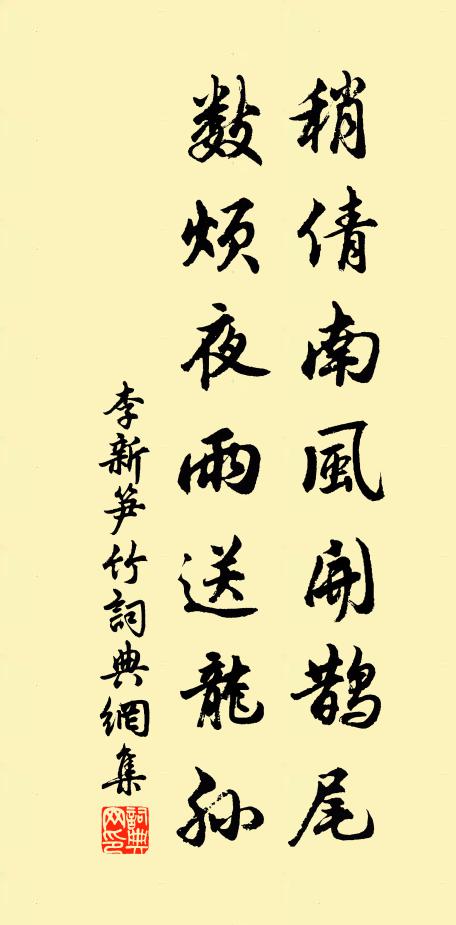 稍倩南風開鵲尾
數煩夜雨送龍孫
李新笋竹詞典網集
詞典网印